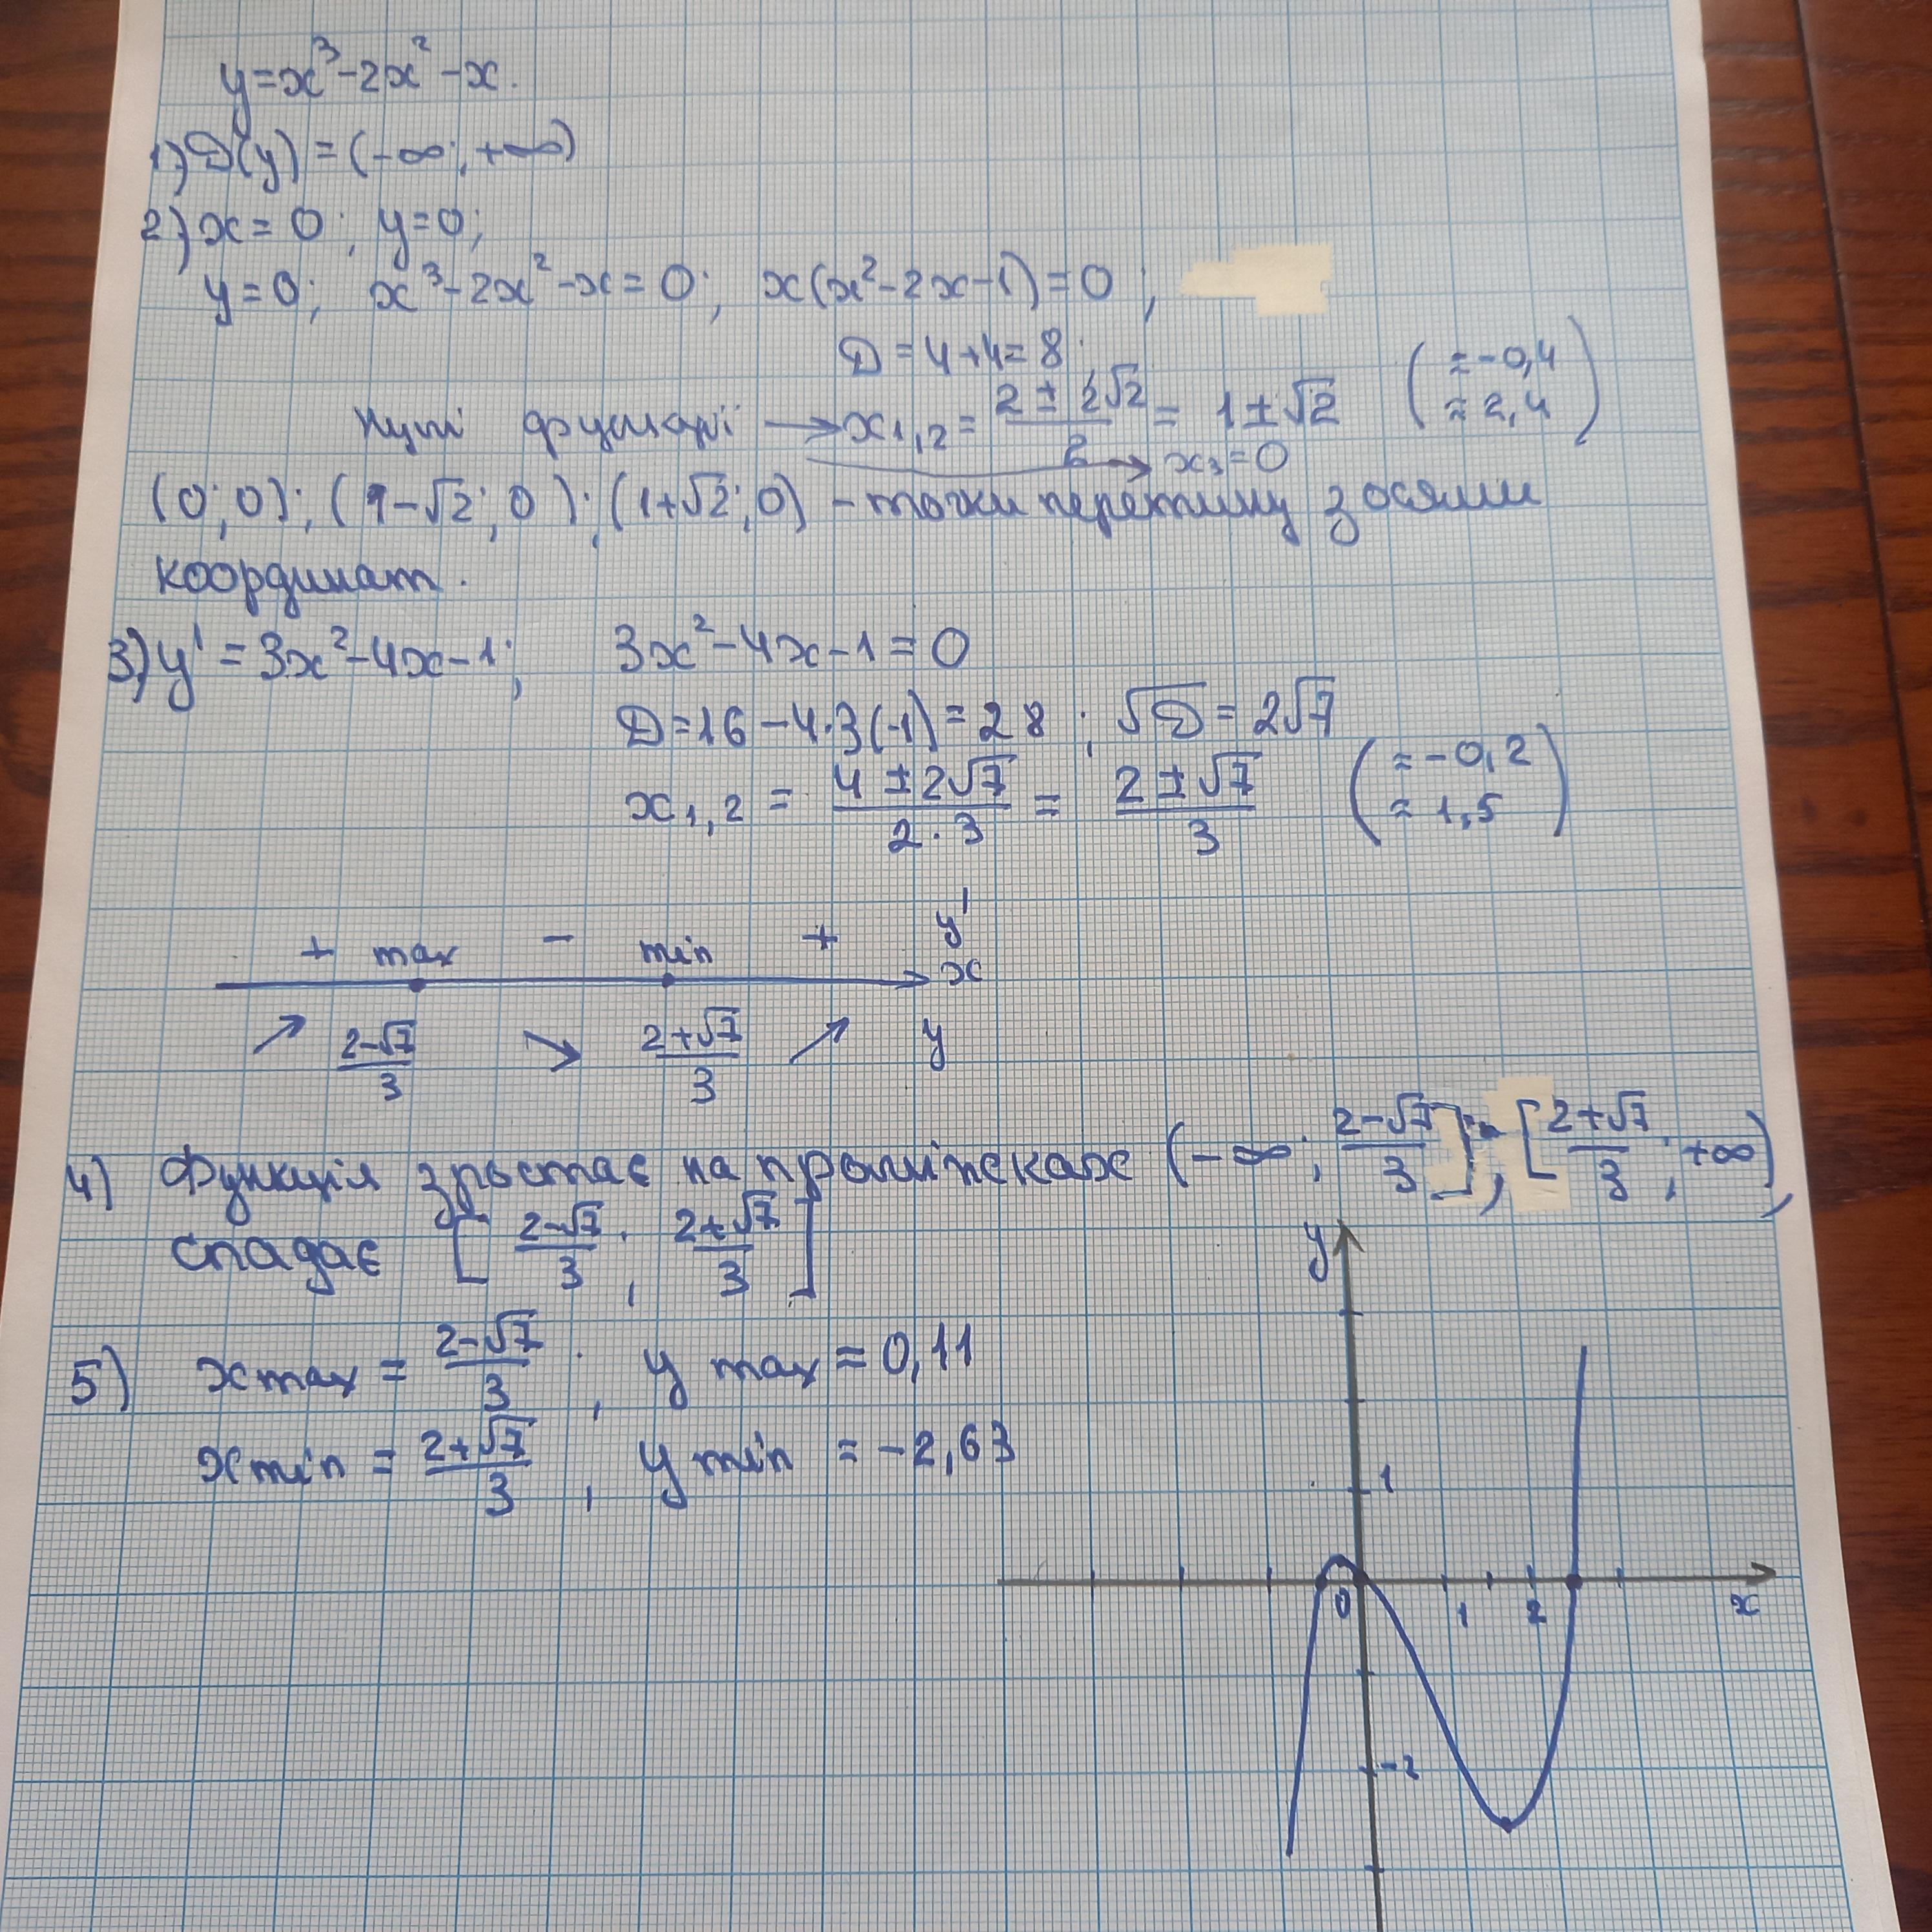 y=x³-2x²-x.
1) D(y)=(-∞;+∞)
2) x=0; y=0;
y=0; x³-2x²-x=0; x(x²-2x-1)=0;
D=4+4=8;
нулі функції → x₁,₂ = (2±2√2)/2 = 1±√2 (≈-0,4 ≈2,4)
→ x₃=0
(0;0); (1-√2;0); (1+√2;0) - точки перетину з осями
координат.
3) y'=3x²-4x-1; 3x²-4x-1=0
D=16-4·3(-1)=28; √D=2√7
x₁,₂ = (4±2√7)/(2·3) = (2±√7)/3 (≈-0,2 ≈1,5)
+ max - min + y'
x
↗ (2-√7)/3 ↘ (2+√7)/3 ↗ y
4) Функція зростає на проміжках (-∞; (2-√7)/3], [(2+√7)/3; +∞),
спадає [(2-√7)/3; (2+√7)/3]
5) xmax = (2-√7)/3; y max = 0,11
xmin = (2+√7)/3, y min = -2,63
y
1
0 1 2 x
-2